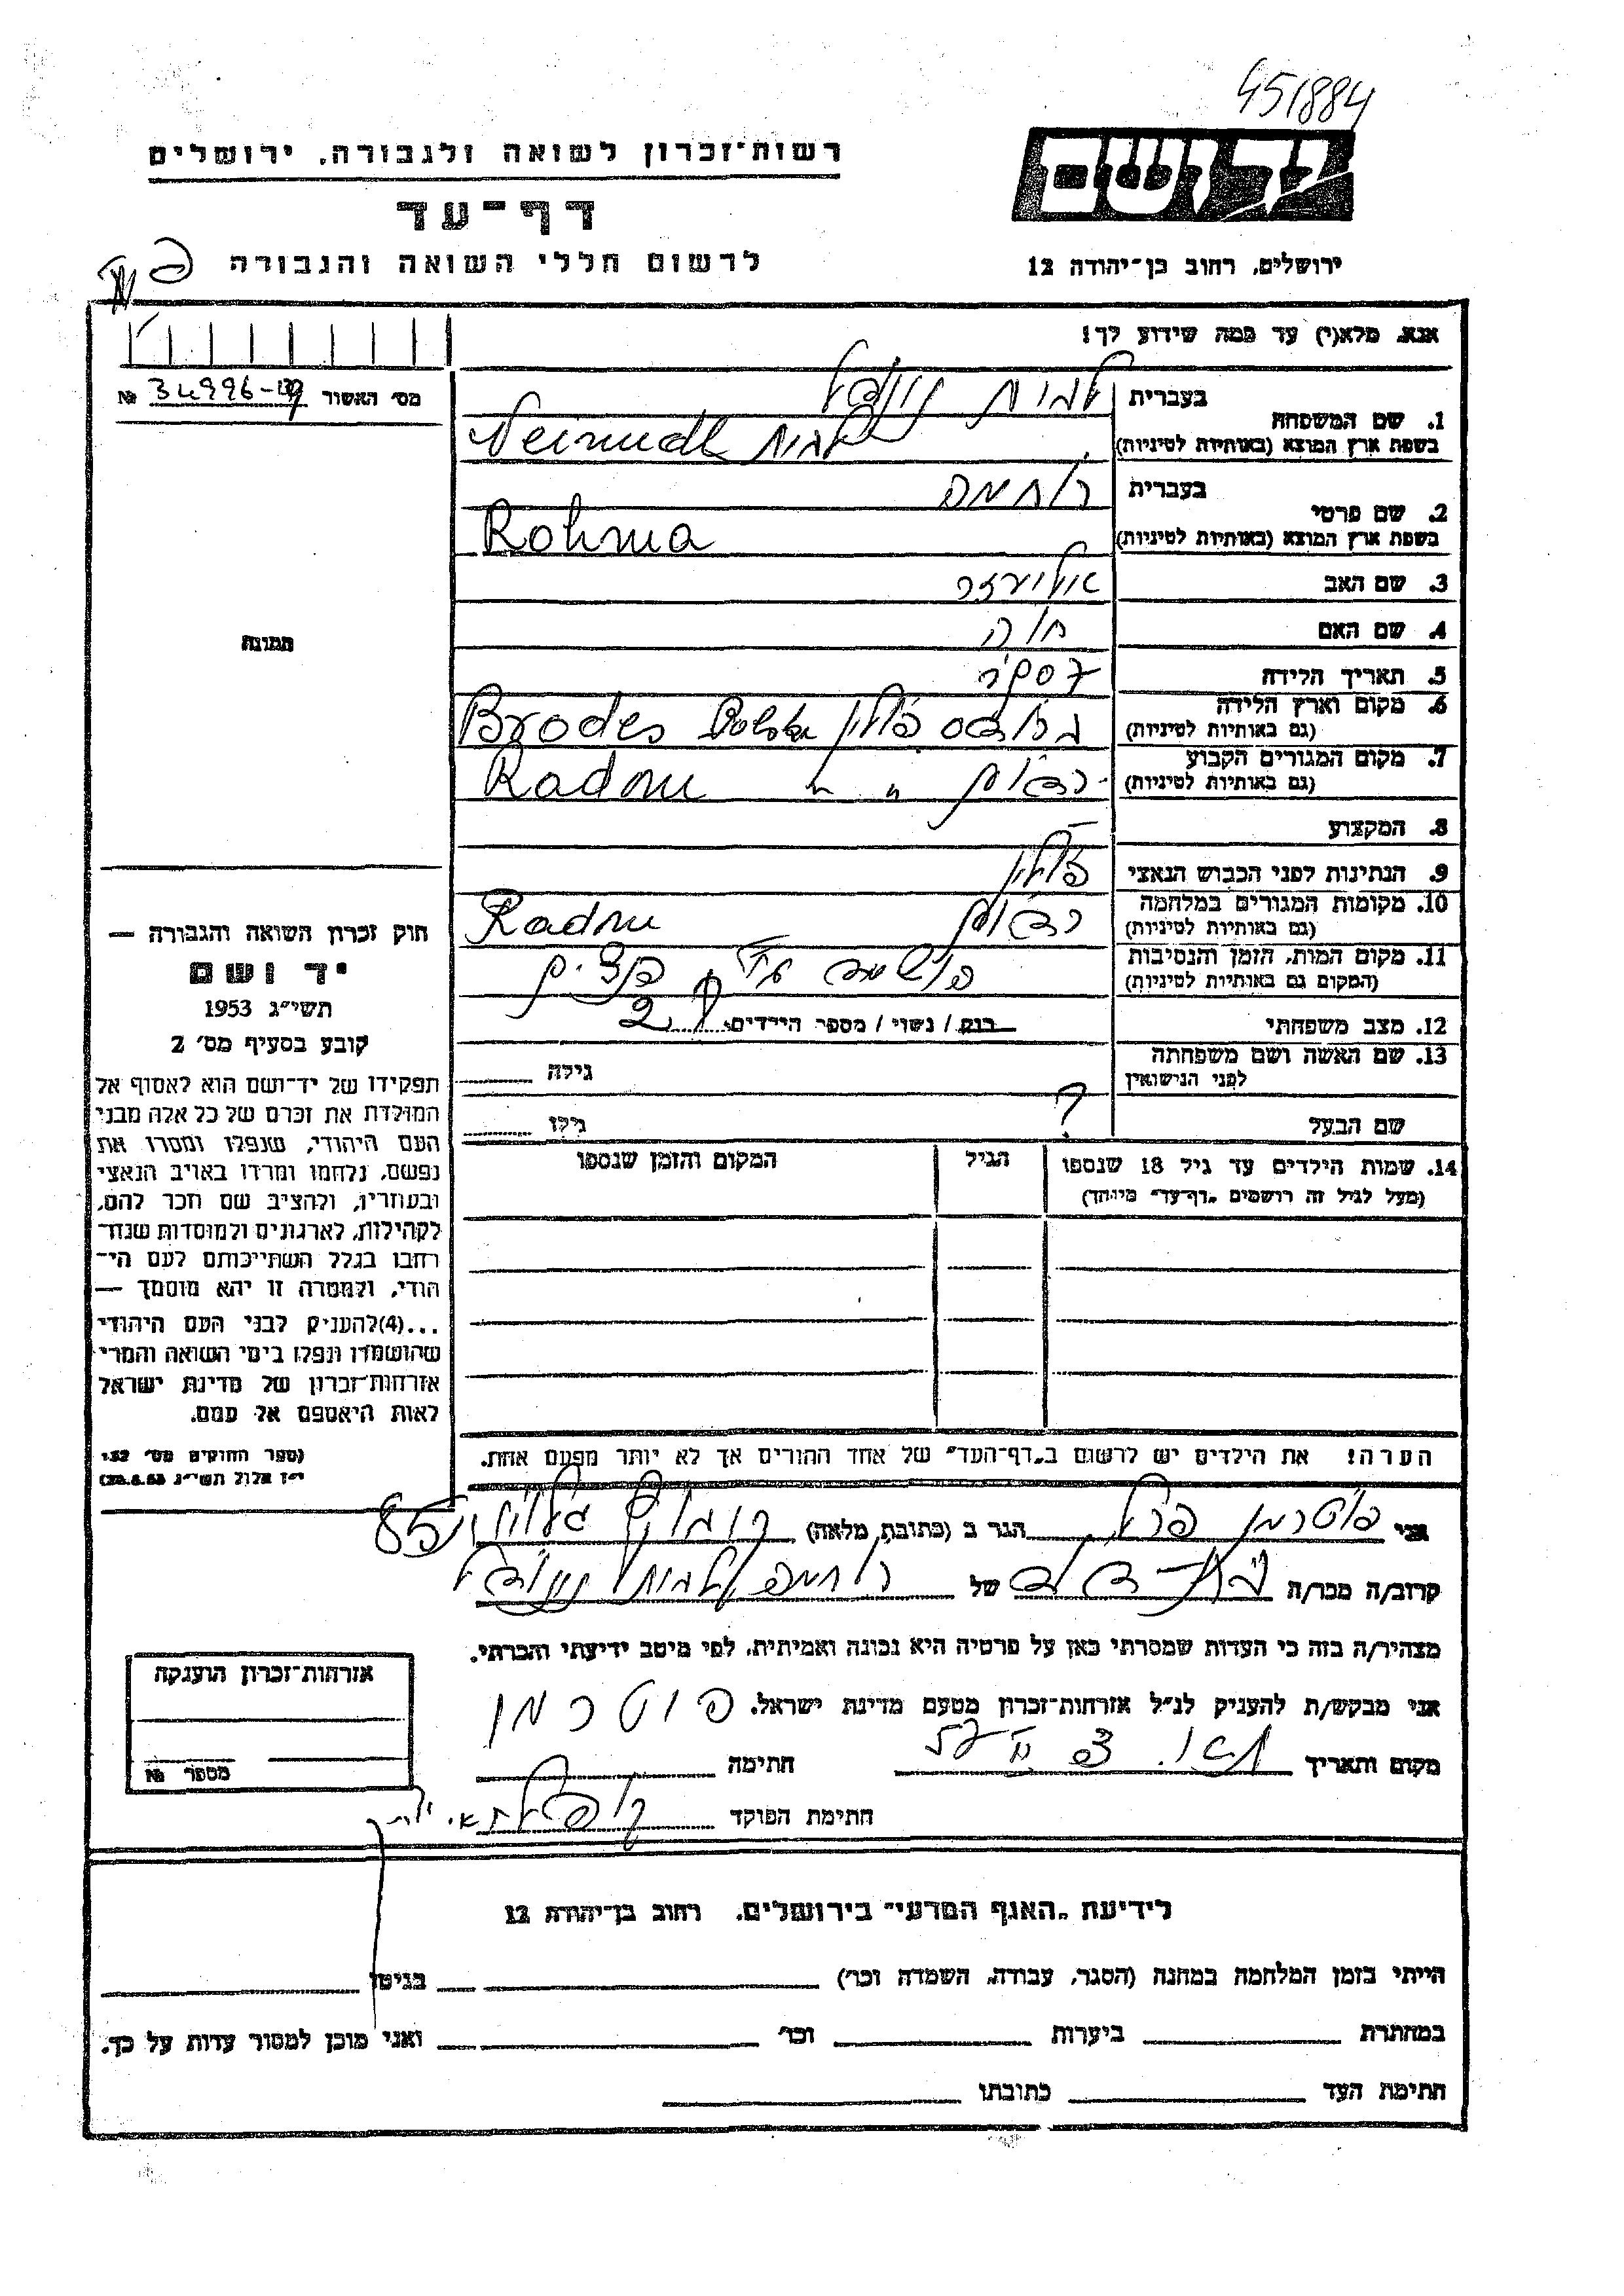 451884
רשות־זכרון לשואה ולגבורה, ירושלים
יד ושם
דף־עד
לרשום חללי השואה והגבורה
ירושלים, רחוב בן־יהודה 12
אנא, מלא(י) עד כמה שידוע לך!
מס' האשור № 34996
1. שם המשפחה
בעברית
בשפת ארץ המוצא (באותיות לטיניות)
2. שם פרטי
בעברית רוחמה
בשפת ארץ המוצא (באותיות לטיניות) Rohma
3. שם האב אליעזר
4. שם האם חוה
5. תאריך הלידה
6. מקום וארץ הלידה
(גם באותיות לטיניות) פולין Polska Brodes
7. מקום המגורים הקבוע
(גם באותיות לטיניות) רדום " " Radom
8. המקצוע –
9. הנתינות לפני הכבוש הנאצי פולין
10. מקומות המגורים במלחמה
(גם באותיות לטיניות) רדום Radom
11. מקום המות, הזמן והנסיבות
(המקום גם באותיות לטיניות)
12. מצב משפחתי רווק / נשוי / מספר הילדים 2
13. שם האשה ושם משפחתה
לפני הנישואין
גילה
שם הבעל ?
גילו
14. שמות הילדים עד גיל 18 שנספו
(מעל לגיל זה רושמים "דף־עד" מיוחד)
הגיל
המקום והזמן שנספו
הערה! את הילדים יש לרשום ב"דף־העד" של אחד ההורים אך לא יותר מפעם אחת.
תמונה
חוק זכרון השואה והגבורה —
יד ושם
תשי"ג 1953
קובע בסעיף מס' 2
תפקידו של יד־ושם הוא לאסוף אל
המולדת את זכרם של כל אלה מבני
העם היהודי, שנפלו ומסרו את
נפשם, נלחמו ומרדו באויב הנאצי
ובעוזריו, ולהציב שם וזכר להם,
לקהילות, לארגונים ולמוסדות שנח־
רבו בגלל השתייכותם לעם הי־
הודי, ולמטרה זו יהא מוסמך —
...(4) להעניק לבני העם היהודי
שהושמדו ונפלו בימי השואה והמרי
אזרחות־זכרון של מדינת ישראל
לאות היאספם אל עמם.
(ספר החוקים מס' 132,
י"ז אלול תשי"ג 28.8.53)
אני הגר ב (כתובת מלאה) 85
קרוב/ה מכר/ה בת־דוד של רוחמה
מצהיר/ה בזה כי העדות שמסרתי כאן על פרטיה היא נכונה ואמיתית, לפי מיטב ידיעתי והכרתי.
אני מבקש/ת להעניק לנ"ל אזרחות־זכרון מטעם מדינת ישראל.
מקום ותאריך
חתימה
חתימת הפוקד
אזרחות־זכרון הוענקה
מספר №
לידיעת "האגף המדעי" בירושלים, רחוב בן־יהודה 12
הייתי בזמן המלחמה במחנה (הסגר, עבודה, השמדה וכו') בגיטו
במחתרת ביערות וכו' ואני מוכן למסור עדות על כך.
חתימת העד כתובתו